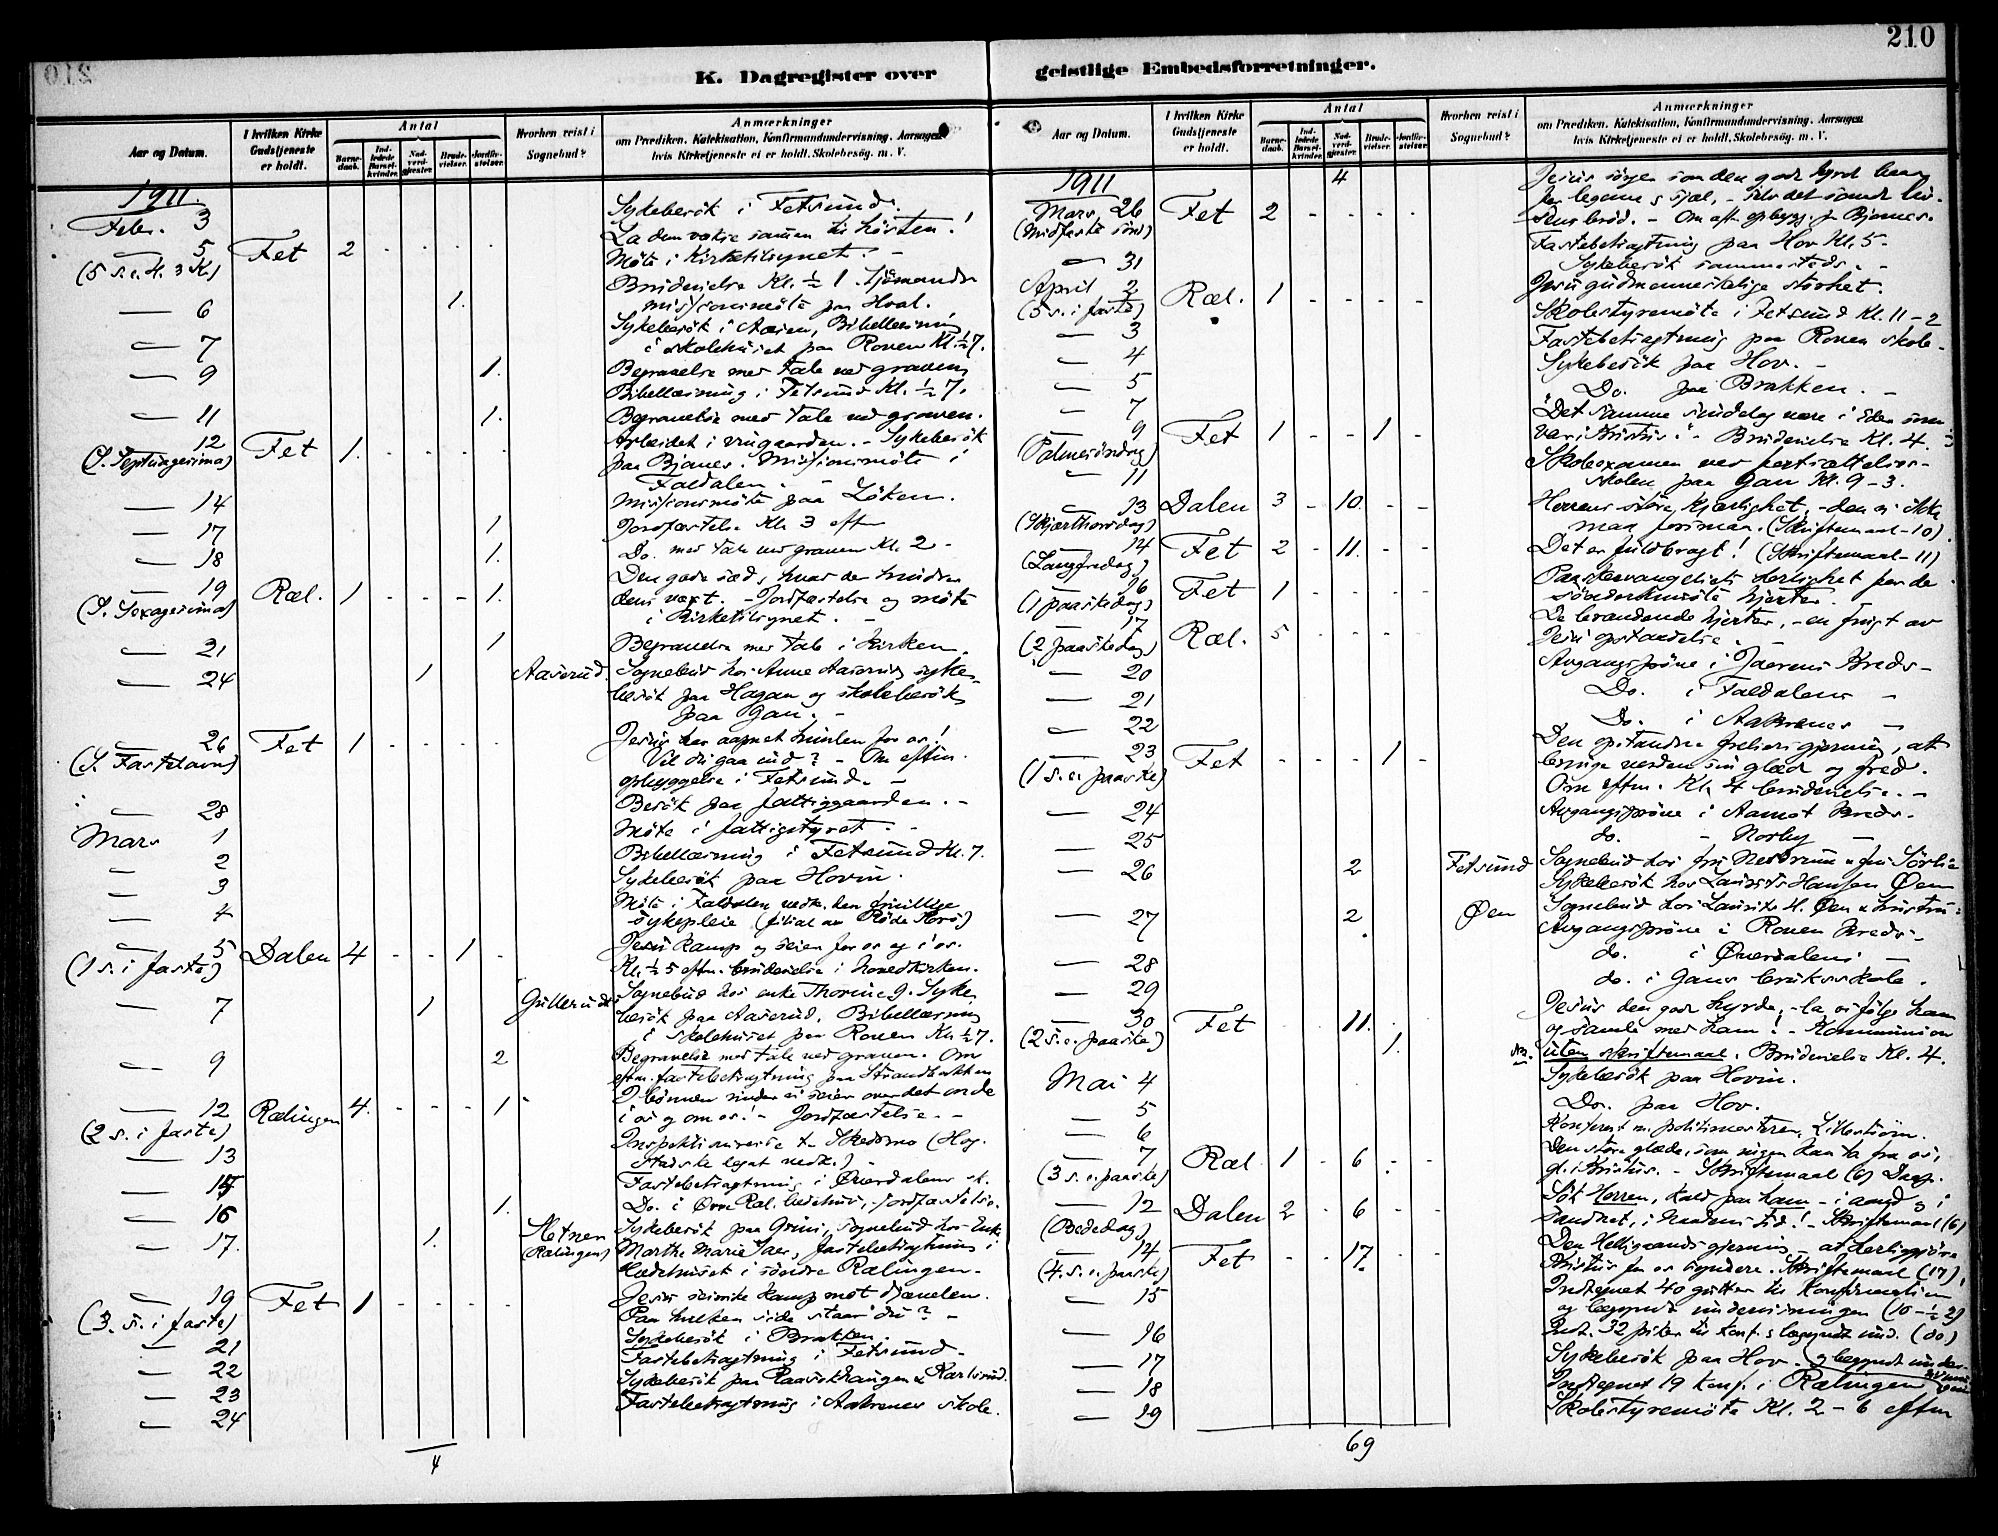 210
K. Dagregister over
Aar og Datum.
I hvilken Kirke Gudstjeneste er holdt.
Antal
Barnedaab.
Indledede Barselkvinder.
Nadverdgjester.
Brudevielser.
Jordfæstelser.
Hvorhen reist i Sognebud?
Anmærkninger
om Prædiken. Katekisation, Konfirmandundervisning. Aarsagen
hvis Kirketjeneste ei er holdt. Skolebesög. m. V.
1911
Febr. 3 Sykebesök i Fetsund.
5 Fet 2 La dem vokse sammen til hösten!
(5 s. e. H. 3 K) Möte i Kirketilsynet. -
6 1. Brudevielse Kl. ½ 1. Sjömands
missionsmöte paa Hval.
7 Sykebesök i Bibellæsning
i skolehuset paa Roven Kl. ½ 7.
9 1. Begravelse med tale ved graven,
Bibellæsning i Fetsund Kl. ½ 7.
11 1. Begravelse med tale ved graven.
12 Fet 1. Arbeidet i vingaarden. - Sykebesök
(S. Septuagesima) paa Bjanes. Missionsmöte i
Faldalen. -
14 Missionsmöte paa Löken.
17 1. Jordfæstelse Kl. 3 eftm
18 1. Do. med tale ved graven Kl. 2 -
19 Ræl. 1 1. Den gode sæd, hvad der hindrer
(S. Sexagesima) dens vext. - Jordfæstelse og möte
i Kirketilsynet. -
21 1 Begravelse med tale i kirken.
24 1 Aaserud. Sognebud hos Anne Aaserud, syke-
besök paa Hagan og skolebesök
paa Gan. -
26 Fet 1 Jesus har aapnet himlen for os!
(S. Fastelavn) Vil du gaa ind? - Om eftm.
opbyggelse i Fetsund. -
28 Besök paa fattiggaarden. -
Mars 1 Möte i fattigstyret. -
2 Bibellæsning i Fetsund Kl. 7.
3 Sykebesök paa Hovin.
4 Möte i Faldalen vedk. den frivillige
sykepleie (filial av Röde Kors)
5 Dalen 4 1 Jesu kamp og seier for os og i os.
(1 s. i faste) Kl. ½ 5 eftm. brudevielse i hovedkirken.
7 1 Gullerudei Sognebud hos enke Thorine G. Syke-
besök paa Aaserud. Bibellæsning
i skolehuset paa Roven Kl. ½ 7.
9 2 Begravelse med tale ved graven. Om
eftm. fastebetragtning paa Strandbakken
12 Rælingen 4. 1 I bönnen vinder vi seier over det onde
(2 s. i faste) i os og om os! - Jordfæstelse. -
13 Inspektionsreise t. Skedsmo (Hog-
stadske legat vedk.) -
15 Fastebetragtning i Överdalens sk.
16 1. Do. i Övre Ræl. bedehus, - jordfæstelse.
17. 1. Sykebesök paa Grini, sognebud hos enke
(Rælingen) Marthe Marie fastebetragtning i
bedehuset i söndre Rælingen.
19 Fet 1 Jesu kamp mot djævelen.
(3. s. i faste) Paa hvilken side staar du? -
21 Sykebesök i Brakken.
22 Fastebetragtning i Fetsund.
23 Sykebesök paa & Karlsrud.
24 Fastebetragtning i Aakrenes skole.
4
geistlige Embedsforretninger.
210
Aar og Datum.
I hvilken Kirke Gudstjeneste er holdt.
Antal
Barnedaab.
Indledede Barselkvinder.
Nadverdgjester.
Brudevielser.
Jordfæstelser.
Hvorhen reist i Sognebud?
Anmærkninger
om Prædiken. Katekisation, Konfirmandundervisning. Aarsagen
hvis Kirketjeneste ei er holdt. Skolebesög. m. V.
1911 4 Jesus sörger som den gode hyrde baade
Mars 26 Fet 2 for legeme & sjæl, - selv det sande liv-
(Midfaste sönd) sens bröd. - Om aft. opbygg. p. Bjanes.
31 Fastebetragtning paa Hov Kl. 5 -
Sykebesök sammesteds. -
April 2 Ræl. 1 Jesu gudmenneskelige storhet.
(5 s. i faste) Skolestyremöte i Fetsund Kl. 11 - 2
3 Fastebetragtning paa Roven skole.
4 Sykebesök paa Hov. -
5 Do. paa Brakken. -
7 "Det samme sindelag være i Eder som
9 Fet 1 1 var i Kristus." - Brudevielse Kl. 4.
(Palmesöndag) Skoleexamen ved fortsættelses-
11 skolen paa Gan Kl. 9 - 3.
13 Dalen 3 10. Herrens store kjærlighet, - den vi ikke
(Skjærthorsdag) maa forsmaa. (Skriftemaal - 10).
14 Fet 2 11. Det er fuldbragt! (Skriftemaal - 11)
(Langfredag) Paaskeevangeliets herlighet for de
16 Fet 1 sönderknuste hjerter.
(1 paaskedag) De brændende hjerter, - en frugt av
17 Ræl. 5 Jesu opstandelse. -
(2 paaskedag)
20 Avgangspröve i Jaerens Kreds -
21 Do. i Faldalens -
22 Do. i Aakrenes -
23 Fet 1 Den opstandne frelsers gjerning, at
(1 s. e. paaske) bringe verden sin glæde og fred.
Om eftm. Kl. 4 brudevielse. -
24 Avgangspröve i Aamot Kreds.
25 do. - Norby -
26 2 Fetsund Sognebud hos fru Nesbrun & fru Sörlie
Sykebesök hos Laurits Hansen Öen
27 2 Öen Sognebud hos Laurits H. Öen & hustru.
Avgangspröve i Roven Kreds -
28 do. i Överdalens -
29 do. i Gans bruksskole.
30 Fet 11. Jesus den gode hyrde, - la os fölge ham
(2 s. e. paaske) 1. og samle med ham! - Kommunion
NB. uten skriftemaal. Brudevielse Kl. 4.
Mai 4 Sykebesök paa Hovin.
5 Do. paa Hov.
6 Konferert m. politimesteren, Lilleström.
7 Ræl 1 6 Den store glæde, som ingen kan ta fra os,
(3 s. e. paaske) gl. i Kristus. - Skriftemaal (6)
12 Dalen 2 6 Sök Herren, kald paa ham - i aand & i
(Bededag) sandhet, i naadens tid! - Skriftemaal (6)
14 Fet 17. Den Helligaands gjerning - at herliggjöre
(4. s. e. paaske) Kristus for os syndere. Skriftemaal (17),
15 Indtegnet 40 gutter til Konfirmation
og begyndt undervisningen (10 - ½ 2)
16 Indt. 32 piker til Konf. & begyndt und. (do)
17 Sykebesök paa Hov.
18 Indtegnet 19 Konf. i Rælingen og begyndt under-
19 Skolestyremöte Kl. 2 - 6 eftm
69